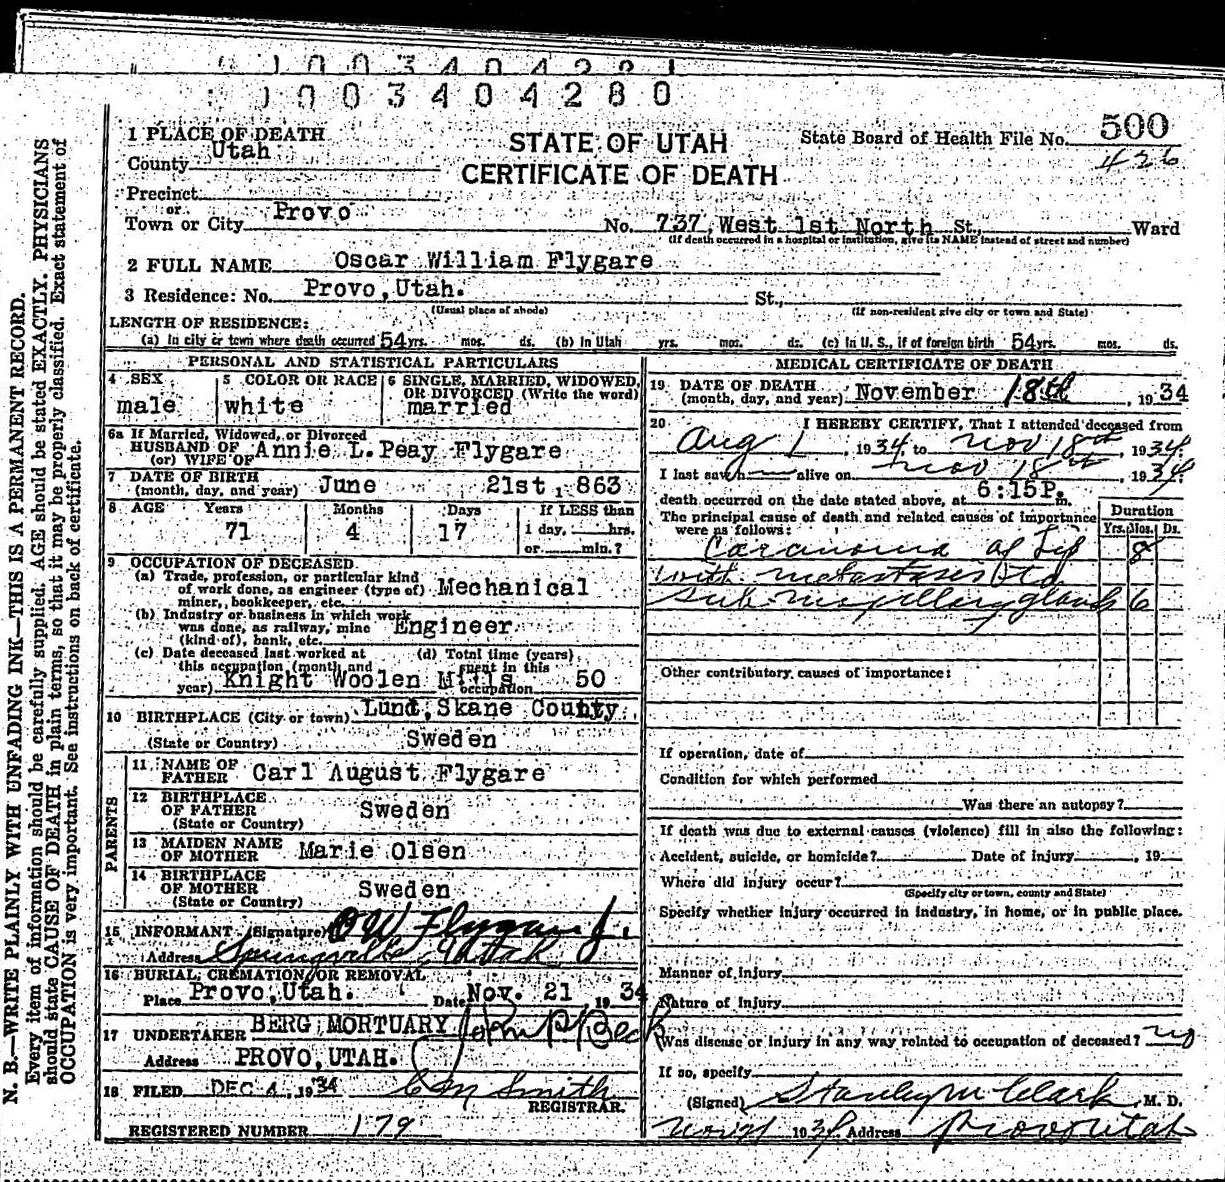 1003404281
1003404280
1 PLACE OF DEATH
STATE OF UTAH
CERTIFICATE OF DEATH
State Board of Health File No. 500
426
County Utah
Precinct
or
Town or City Provo No. 737 West 1st North St., Ward
(If death occurred in a hospital or institution, give its NAME instead of street and number)
2 FULL NAME Oscar William Flygare
3 Residence: No. Provo, Utah. St.,
(Usual place of abode) (If non-resident give city or town and State)
LENGTH OF RESIDENCE:
(a) In city or town where death occurred 54 yrs. mos. ds. (b) In Utah yrs. mos. ds. (c) In U. S., if of foreign birth 54 yrs. mos. ds.
PERSONAL AND STATISTICAL PARTICULARS
4 SEX male
5 COLOR OR RACE white
6 SINGLE, MARRIED, WIDOWED, OR DIVORCED (Write the word) married
6a If Married, Widowed, or Divorced
HUSBAND OF
(or) WIFE OF Annie L. Peay Flygare
7 DATE OF BIRTH
(month, day, and year) June 21st, 863
8 AGE Years Months Days If LESS than
71 4 17 1 day, hrs.
or min.?
9 OCCUPATION OF DECEASED
(a) Trade, profession, or particular kind
of work done, as engineer (type of) Mechanical
miner, bookkeeper, etc.
(b) Industry or business in which work
was done, as railway, mine Engineer
(kind of), bank, etc.
(c) Date deceased last worked at (d) Total time (years)
this occupation (month and spent in this
year) Knight Woolen Mills occupation 50
10 BIRTHPLACE (City or town) Lund, Skane County,
(State or Country) Sweden
PARENTS
11 NAME OF
FATHER Carl August Flygare
12 BIRTHPLACE
OF FATHER Sweden
(State or Country)
13 MAIDEN NAME
OF MOTHER Marie Olsen
14 BIRTHPLACE
OF MOTHER Sweden
(State or Country)
15 INFORMANT (Signature) O W Flygare Jr.
Address Springville, Utah
16 BURIAL, CREMATION OR REMOVAL
Place Provo, Utah. Date Nov. 21, 1934
17 UNDERTAKER BERG MORTUARY John P Beck
Address PROVO, UTAH.
18 FILED DEC 4, 1934 Smith
REGISTRAR.
REGISTERED NUMBER 179
MEDICAL CERTIFICATE OF DEATH
19 DATE OF DEATH
(month, day, and year) November 18th, 1934
20 I HEREBY CERTIFY, That I attended deceased from
Aug 1, 1934, to Nov 18th, 1934.
I last saw h alive on Nov 18th, 1934.
death occurred on the date stated above, at 6:15P. m.
The principal cause of death and related causes of importance
were as follows:
Duration
Yrs. Mos. Ds.
Carcinoma of Lip 8
with metastases to
sub maxillary glands 6
Other contributory causes of importance:
If operation, date of
Condition for which performed
Was there an autopsy?
If death was due to external causes (violence) fill in also the following:
Accident, suicide, or homicide? Date of injury , 19
Where did injury occur?
(Specify city or town, county and State)
Specify whether injury occurred in industry, in home, or in public place.
Manner of injury
Nature of injury
Was disease or injury in any way related to occupation of deceased? no
If so, specify
(Signed) Stanley M Clark, M. D.
Nov 21 1934 Address Provo Utah
N. B.—WRITE PLAINLY WITH UNFADING INK—THIS IS A PERMANENT RECORD.
Every item of information should be carefully supplied. AGE should be stated EXACTLY. PHYSICIANS
should state CAUSE OF DEATH in plain terms, so that it may be properly classified. Exact statement of
OCCUPATION is very important. See instructions on back of certificate.